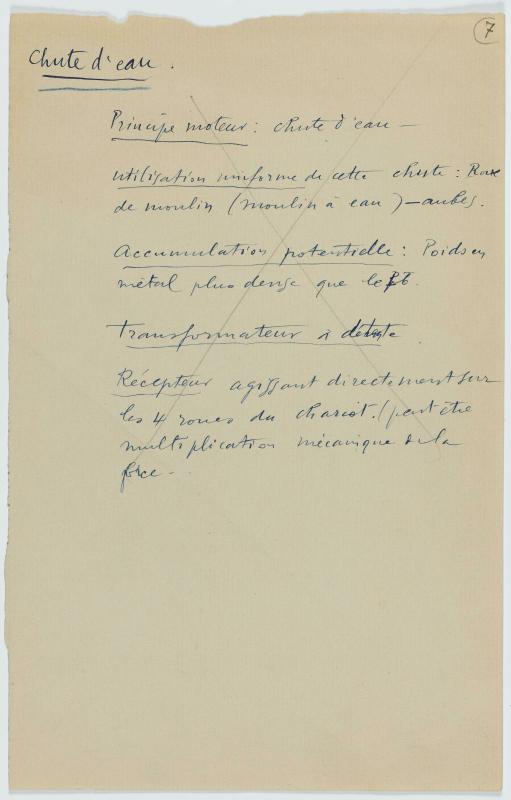 7
Chute d'eau.
Principe moteur : chute d'eau —
utilisation uniforme de cette chute : Roue
de moulin (moulin à eau) — aubes.
Accumulation potentielle : Poids en
métal plus dense que le Pb.
Transformateur à détente
Récepteur agissant directement sur
les 4 roues du chariot. (peut être
multiplication mécanique de la
force —